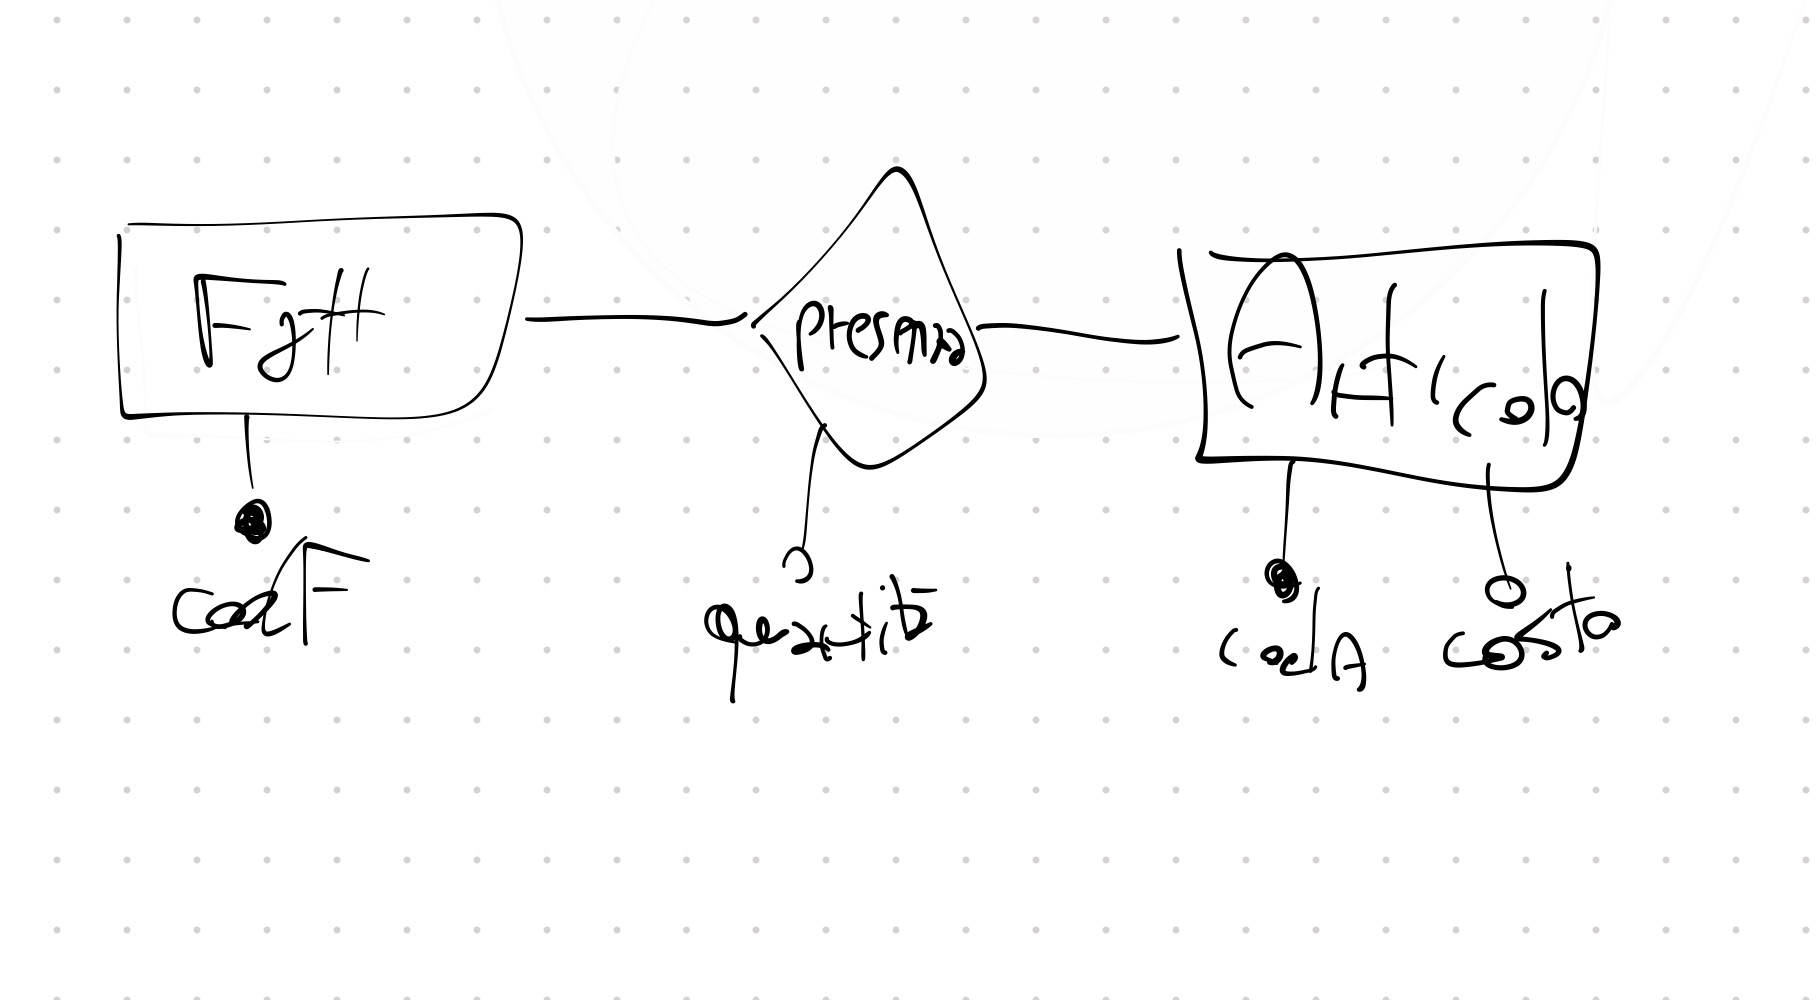 Presenza
Articolo
codF
quantità
codA
costo